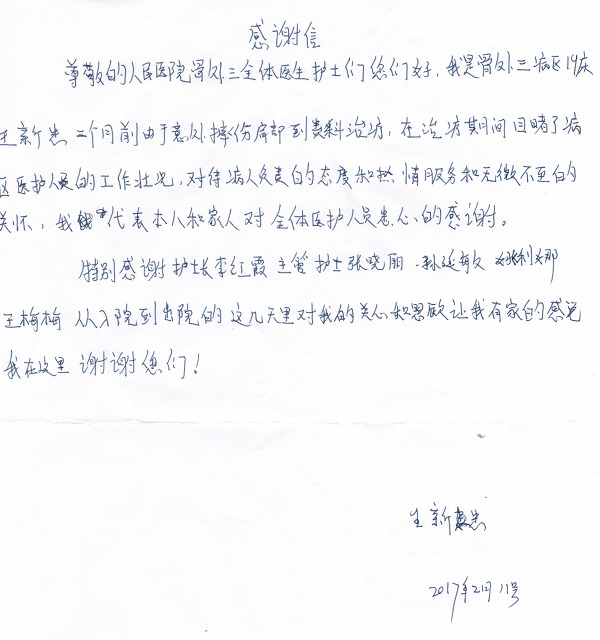 感谢信
尊敬的人民医院骨外三全体医生护士们您们好,我是骨外三病区19床
王新忠 二个月前由于意外摔伤肩部到贵科治疗,在治疗期间目睹了病
区医护人员的工作状况,对待病人负责的态度和热情服务和无微不至的
关怀,我代表本人和家人对全体医护人员衷心的感谢。
特别感谢护士长李红霞 主管护士张晓丽 孙延敏 姚利娜
王梅梅 从入院到出院的这几天里对我的关心和照顾让我有家的感觉
我在这里 谢谢您们!
王新忠
2017年2月11号